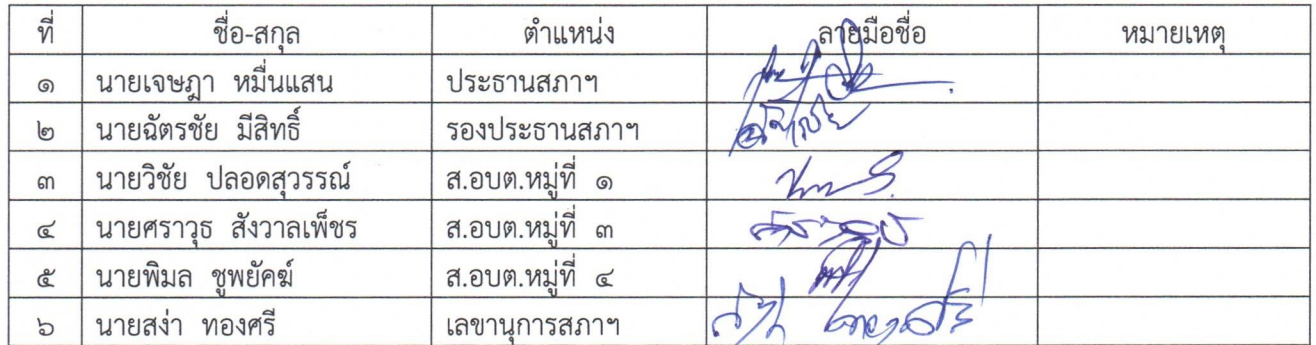 ที่ ชื่อ-สกุล ตำแหน่ง ลายมือชื่อ หมายเหตุ
๑ นายเจษฎา หมื่นแสน ประธานสภาฯ
๒ นายฉัตรชัย มีสิทธิ์ รองประธานสภาฯ
๓ นายวิชัย ปลอดสุวรรณ์ ส.อบต.หมู่ที่ ๑
๔ นายศราวุธ สังวาลเพ็ชร ส.อบต.หมู่ที่ ๓
๕ นายพิมล ชูพยัคฆ์ ส.อบต.หมู่ที่ ๔
๖ นายสง่า ทองศรี เลขานุการสภาฯ